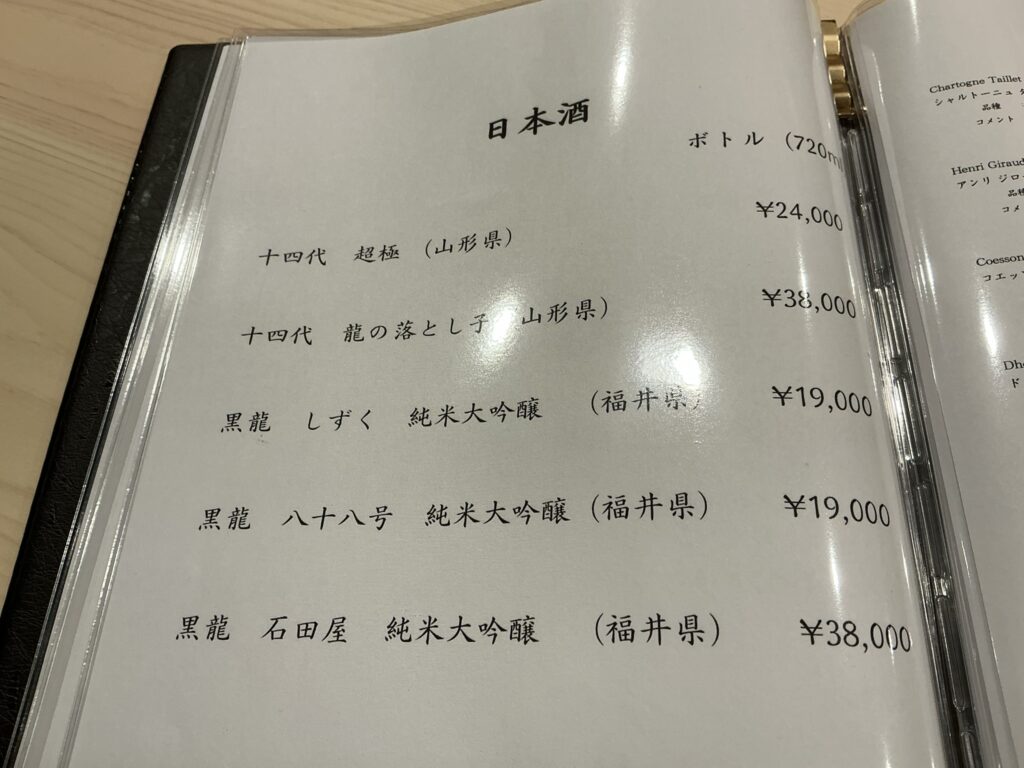 日本酒
ボトル (720m
十四代 超極 (山形県) ¥24,000
十四代 龍の落とし子 山形県) ¥38,000
黒龍 しずく 純米大吟醸 (福井県) ¥19,000
黒龍 八十八号 純米大吟醸 (福井県) ¥19,000
黒龍 石田屋 純米大吟醸 (福井県) ¥38,000
Chartogne Taillet
シャルトーニュ
品種
コメント
Henri Giraud
アンリ ジロー
品種
コメ
Coesson
コエッ
Dh
ド